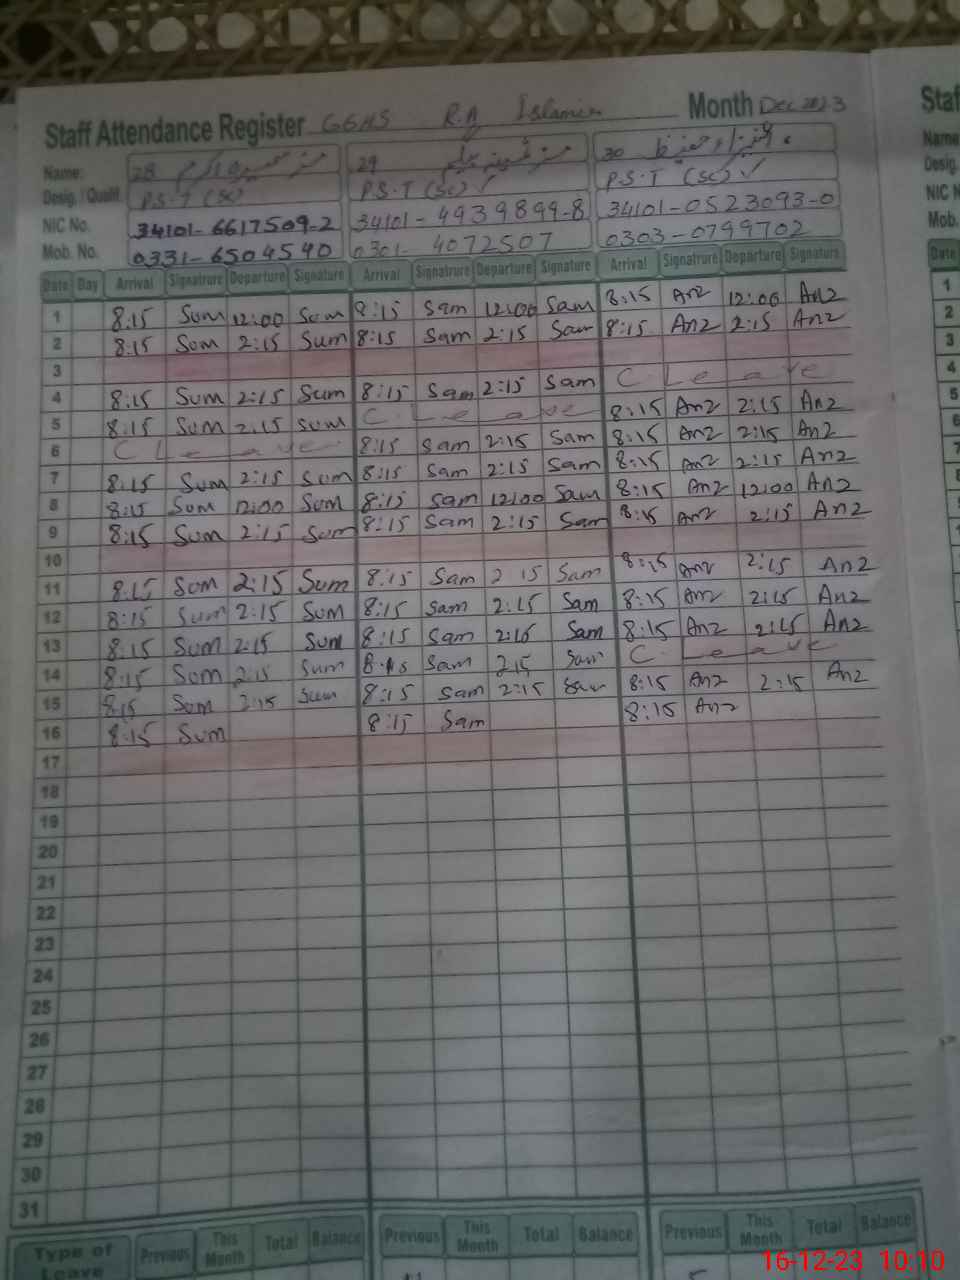 Staff Attendance Register GGHS R.A Islamia Month Dec 2023
Name: 28 29 30
Desig. / Qualif. P.S.T (SC) P.S.T (SC) ✓ P.S.T (SC) ✓
NIC No. 34101-6617509-2 34101-4939899-8 34101-0523093-0
Mob. No. 0331-6504540 0301-4072507 0303-0799702
Date Day Arrival Signatrure Departure Signature Arrival Signatrure Departure Signature Arrival Signatrure Departure Signature
1 8:15 Sum 12:00 Sum 8:15 Sam 12:00 Sam 8:15 An2 12:00 An2
2 8:15 Sum 2:15 Sum 8:15 Sam 2:15 Sam 8:15 An2 2:15 An2
3
4 8:15 Sum 2:15 Sum 8:15 Sam 2:15 Sam C. Leave
5 8:15 Sum 2:15 Sum C. Leave 8:15 An2 2:15 An2
6 C Leave 8:15 Sam 2:15 Sam 8:15 An2 2:15 An2
7 8:15 Sum 2:15 Sum 8:15 Sam 2:15 Sam 8:15 An2 2:15 An2
8 8:15 Sum 12:00 Sum 8:15 Sam 12:00 Sam 8:15 An2 12:00 An2
9 8:15 Sum 2:15 Sum 8:15 Sam 2:15 Sam 8:15 An2 2:15 An2
10
11 8:15 Sum 2:15 Sum 8:15 Sam 2 15 Sam 8:15 An2 2:15 An2
12 8:15 Sum 2:15 Sum 8:15 Sam 2:15 Sam 8:15 An2 2:15 An2
13 8:15 Sum 2:15 Sum 8:15 Sam 2:15 Sam 8:15 An2 2:15 An2
14 8:15 Sum 2:15 Sum 8:15 Sam 2.15 Sam C. Leave
15 8:15 Sum 2:15 Sum 8:15 Sam 2:15 Sam 8:15 An2 2:15 An2
16 8:15 Sum 8:15 Sam 8:15 An2
17
18
19
20
21
22
23
24
25
26
27
28
29
30
31
Type of Leave Previous This Month Total Balance Previous This Month Total Balance Previous This Month Total Balance
Staf
Name
Desig.
NIC N
Mob.
Date
1
2
3
4
5
6
7
8
16-12-23 10:10